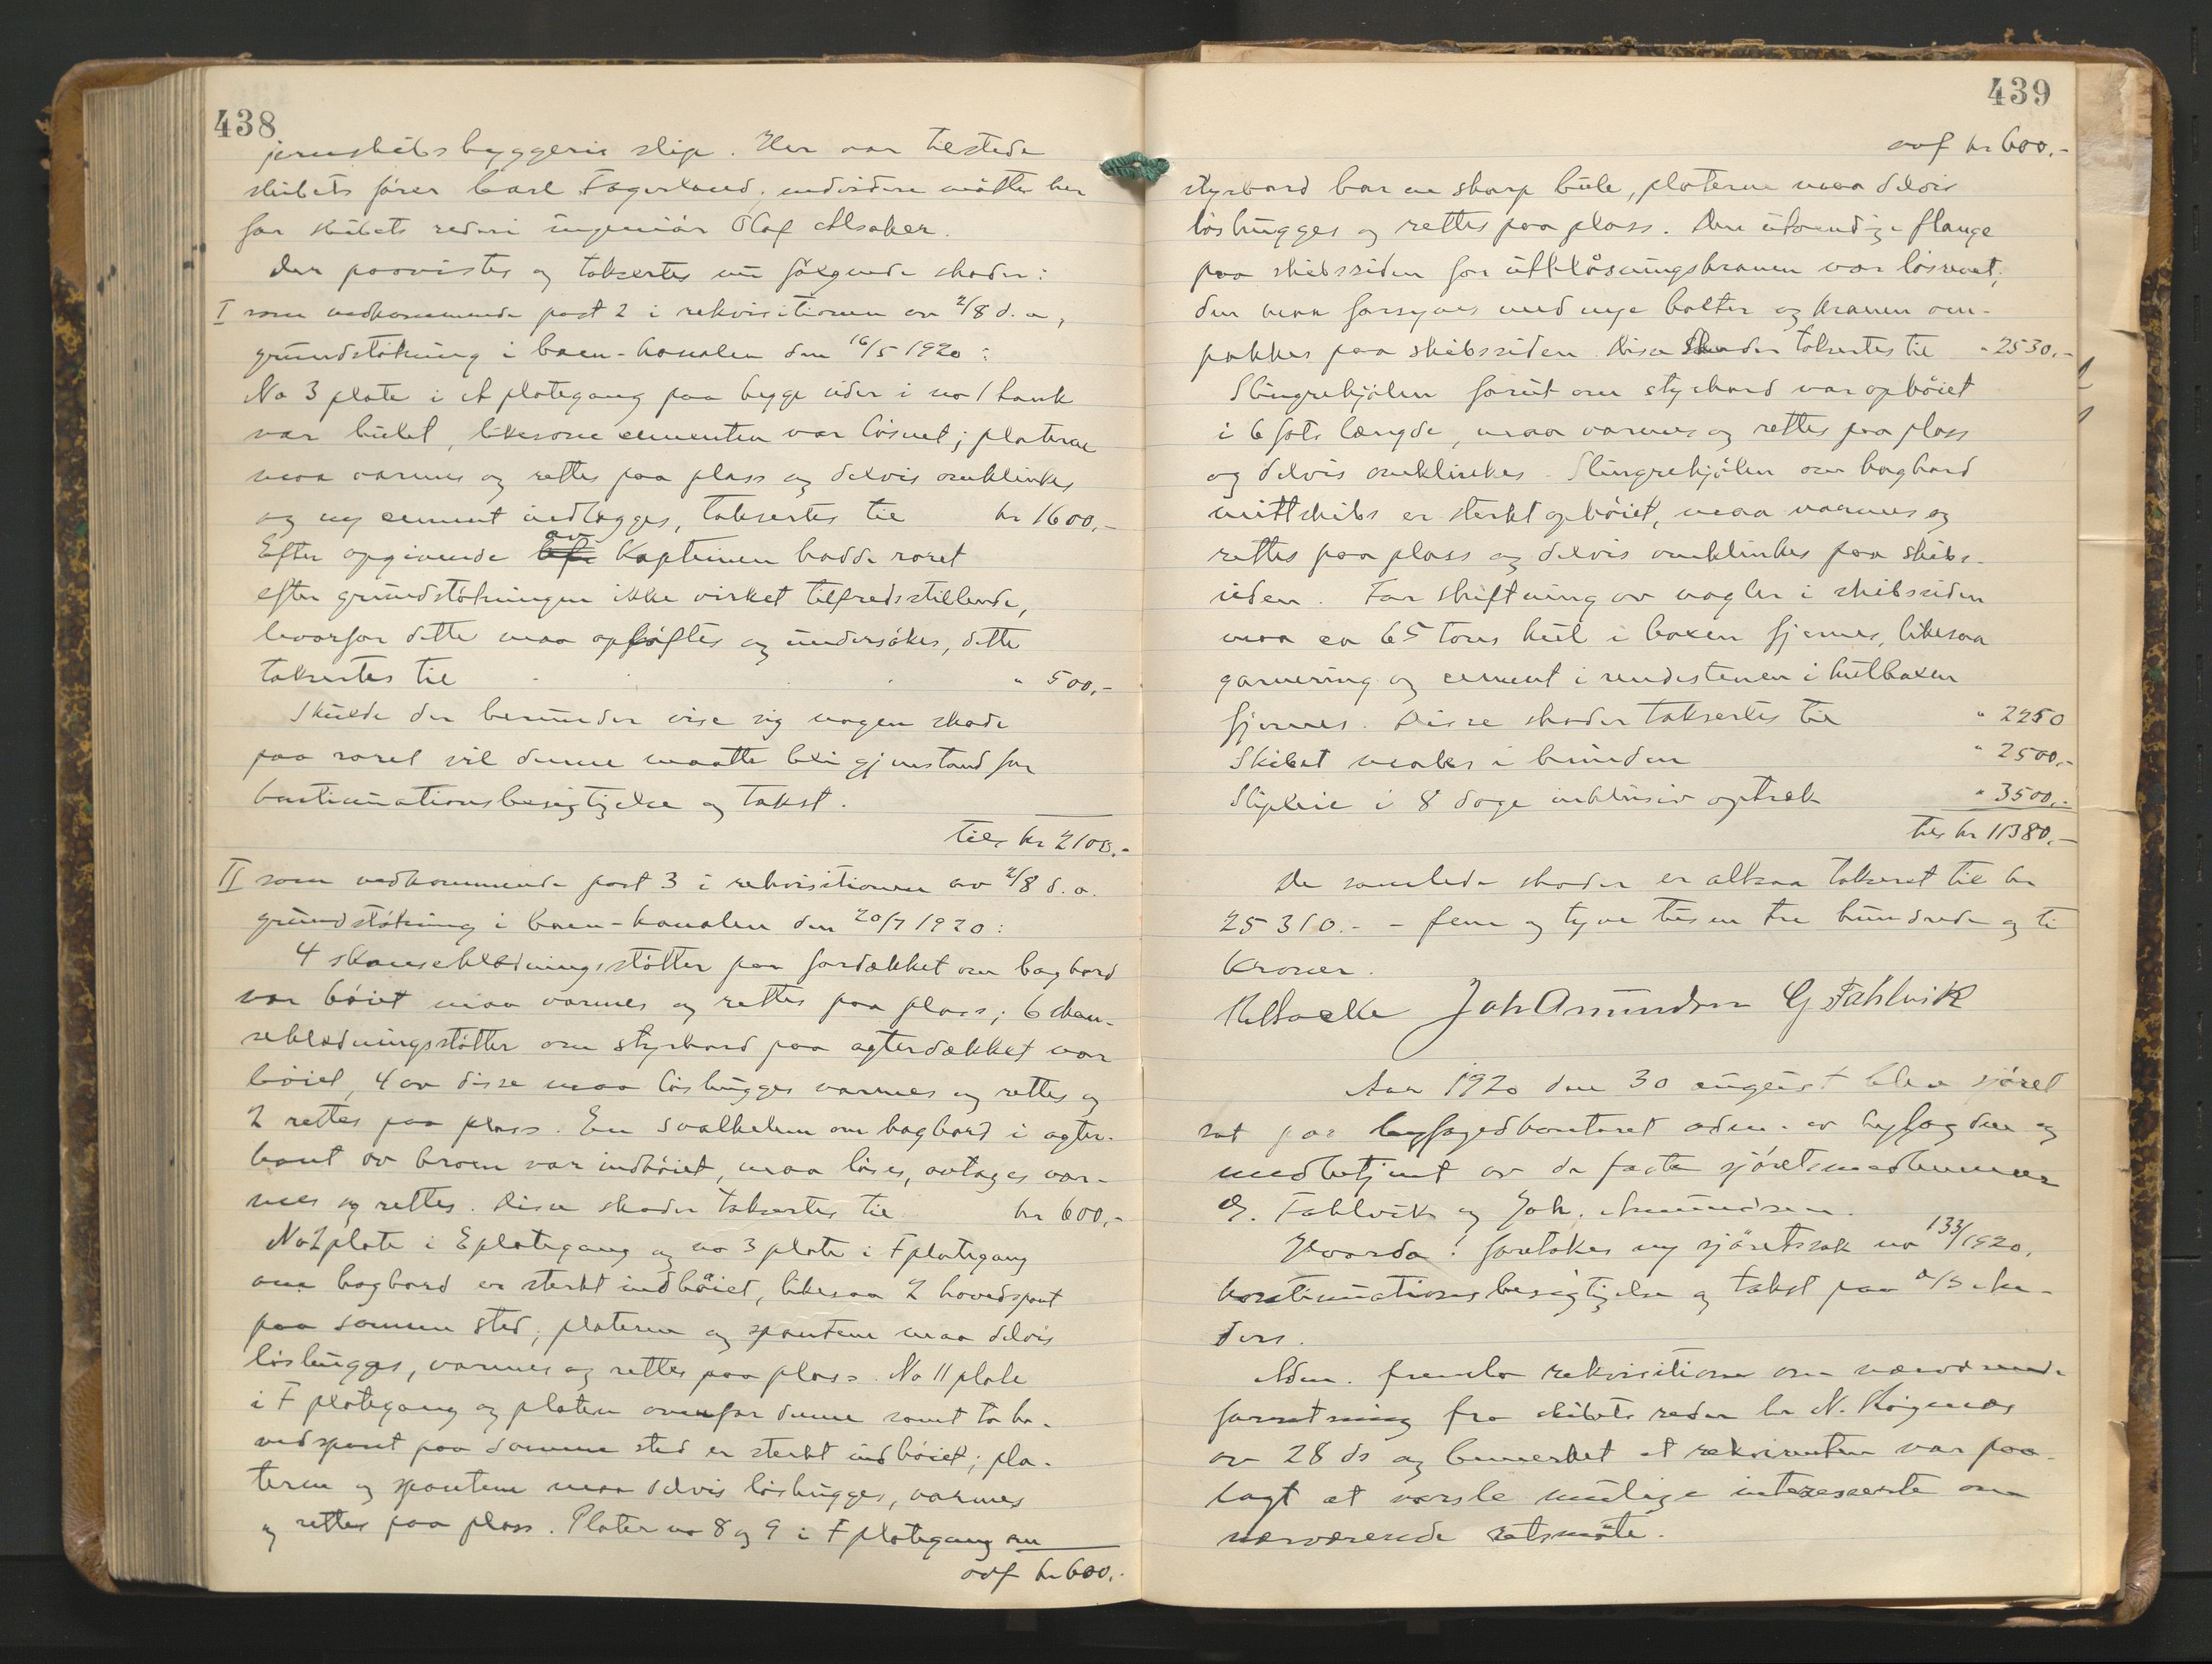 438
jernskibsbyggeris slip. Her var tilstede
skibets fører Carl Fagerland, endvidere møtte her
for skibets rederi ingeniör Olaf Alsaker.
Der paavistes og taksertes nu fölgende skader:
I som vedkommende post 2 i rekvisitionen av 2/8 d. a,
grundstötning i Caen-kanalen den 16/5 1920:
No 3 plate i A plategang paa begge sider i no 1 tank
var bulet, likesom cementen var lösnet; platerne
maa varmes og rettes paa plass og delvis omklinkes
og ny cement indlægges, taksertes til kr 1600,-
Efter opgivende av Kapteinen hadde roret
efter grundstötningen ikke virket tilfredsstillende,
hvorfor dette maa oplöftes og undersökes, dette
taksertes til " 500,-
Skulde der herunder vise sig nogen skade
paa roret vil denne maatte bli gjenstand for
kontinuationsbesigtigelse og takst.
tils kr 2100.-
II som vedkommende post 3 i rekvisitionen av 2/8 d. a.
grundstötning i Caen-kanalen den 20/7 1920:
4 skanseklædningsstötter paa fordækket om bagbord
var böiet maa varmes og rettes paa plass; 6 skan-
seklædningsstötter om styrbord paa agterdækket var
böiet, 4 av disse maa löshugges varmes og rettes og
2 rettes paa plass. En svalkelem om bagbord i agter-
kant av broen var indböiet, maa löses, avtages var-
mes og rettes. Disse skader taksertes til kr 600,-
No 2 plate i E plategang og no 3 plate i F plategang
om bagbord er sterkt indböiet, likesaa 2 hovedspant
paa samme sted, platerne og spantene maa delvis
löshugges, varmes og rettes paa plass. No 11 plate
i F plategang og platen ovenfor denne samt to ho-
vedspant paa samme sted er sterkt indböiet; pla-
terne og spantene maa delvis löshugges, varmes
og rettes paa plass. Plater no 8 og 9 i F plategang om
ovf kr 600.-
439
ovf kr 600.-
styrbord har en skarp bule, platerne maa delvis
löshugges og rettes paa plass. Den utvendige flange
paa skibssiden for utblåsningskranen var lösrevet,
den maa forsynes med nye bolter og kranen om-
pakkes paa skibssiden. Disse Skader taksertes til " 2530.-
Slingrekjölen forut om styrbord var opböiet
i 6 fots længde, maa varmes og rettes paa plass
og delvis omklinkes. Slingrekjölen om bagbord
mittskibs er sterkt opböiet, maa varmes og
rettes paa plass og delvis omklinkes paa skibs-
siden. For skiftning av nagler i skibssiden
maa ca 65 tons kul i boxen fjernes, likesaa
garnering og cement i rendestenen i kulboxen
fjernes. Disse skader taksertes til " 2250
Skibet males i bunden " 2500.-
Slipleie i 8 dage inklusiv optræk " 3500.-
tils kr 11380.-
De samlede skader er altsaa taksert til kr
25310.- - fem og tyve tusen tre hundrede og ti
kroner.
Joh Amundsen G. Fahlvik
Aar 1920 den 30 august blev sjöret
sat paa byfogedkontoret adm. av byfogden og
medbetjent av de faste sjöretsmedlemmer
G. Fahlvik og Joh. Amundsen.
Hvorda: foretokes ny sjöretssak no 133/1920,
kontinuationsbesigtigelse og takst paa d/s

Adm. fremla rekvisitionen om nærværende
forretning fra skibets reder hr N.
av 28 ds og bemerket at rekvirenten var paa-
lagt at varsle mulige interesserte om
nærværende retsmöte.